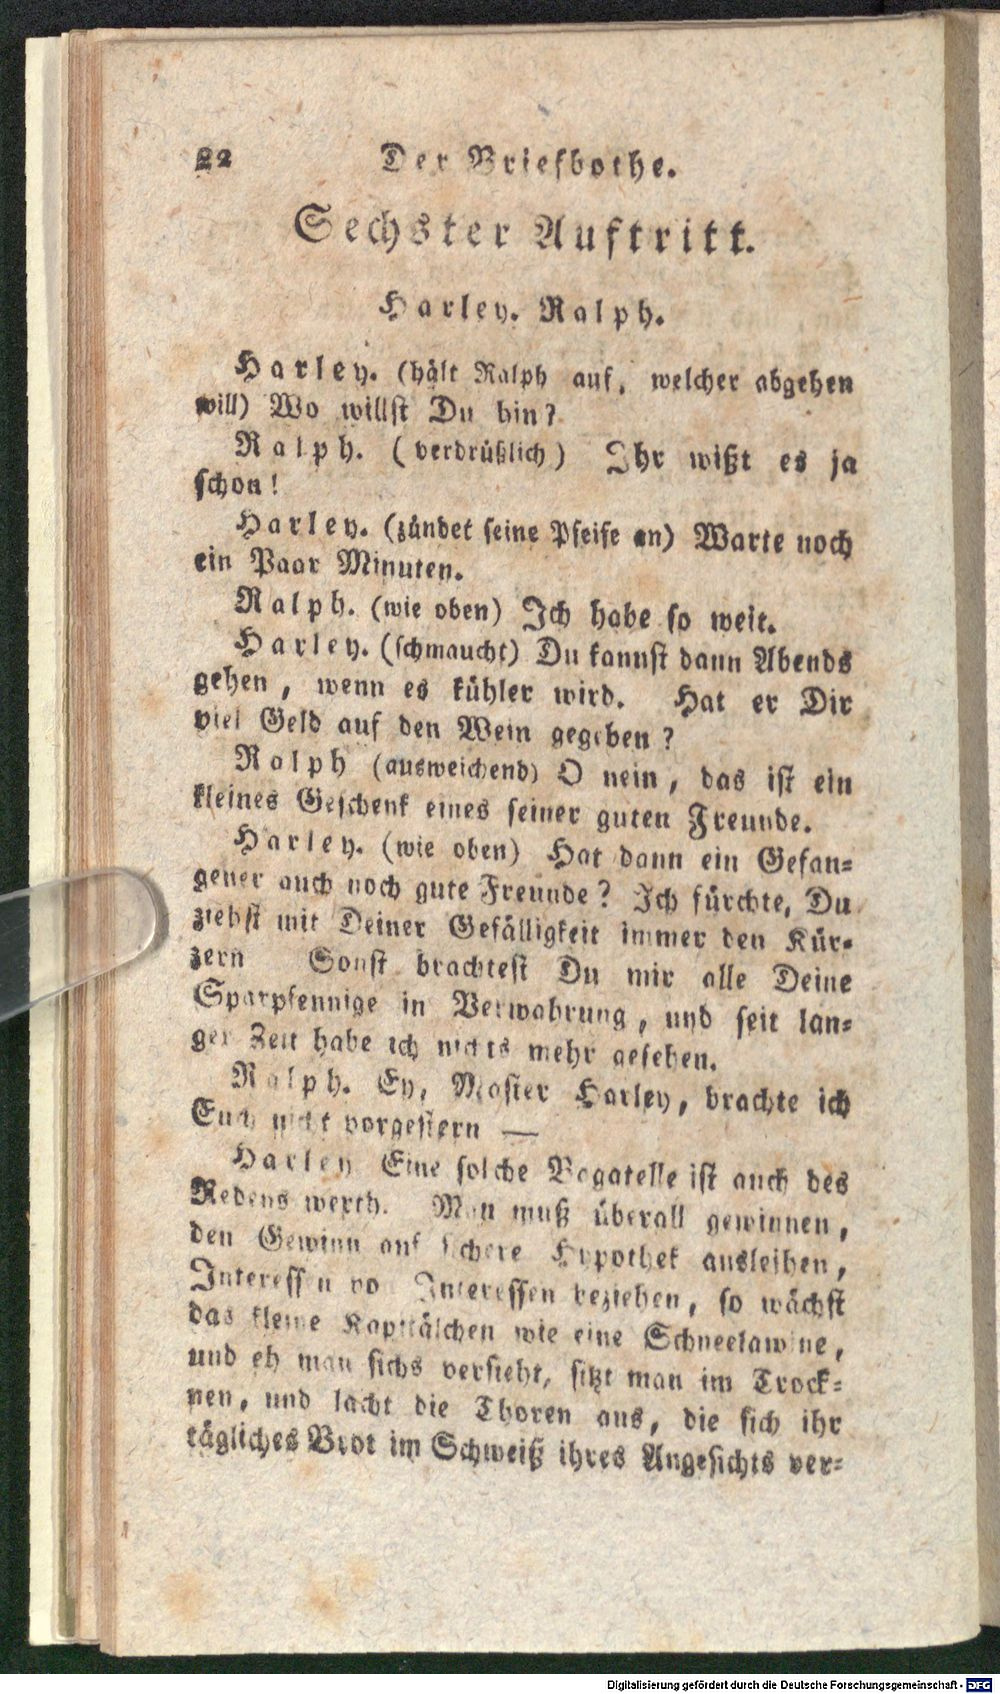 22 Der Briefbothe.
Sechster Auftritt.
Harley. Ralph.
Harley. (hält Ralph auf, welcher abgehen
will) Wo willst Du hin?
Ralph. (verdrüßlich) Ihr wißt es ja
schon!
Harley. (zündet seine Pfeife an) Warte noch
ein Paar Minuten.
Ralph. (wie oben) Ich habe so weit.
Harley. (schmaucht) Du kannst dann Abends
gehen, wenn es kühler wird. Hat er Dir
viel Geld auf den Wein gegeben?
Ralph (ausweichend) O nein, das ist ein
kleines Geschenk eines seiner guten Freunde.
Harley. (wie oben) Hat dann ein Gefan-
gener auch noch gute Freunde? Ich fürchte, Du
ziehst mit Deiner Gefälligkeit immer den Kür-
zern Sonst brachtest Du mir alle Deine
Sparpfennige in Verwahrung, und seit lan-
ger Zeit habe ich nichts mehr gesehen.
Ralph. Ey, Master Harley, brachte ich
Euch nicht vorgestern —
Harley Eine solche Bagatelle ist auch des
Redens werth. Man muß überall gewinnen,
den Gewinn auf sichere Hypothek ausleihen,
Interessen von Interessen beziehen, so wächst
das kleine Kapitälchen wie eine Schneelawine,
und eh man sichs versieht, sitzt man im Trock-
nen, und lacht die Thoren aus, die sich ihr
tägliches Brot im Schweiß ihres Angesichts ver-
Digitalisierung gefördert durch die Deutsche Forschungsgemeinschaft - DFG